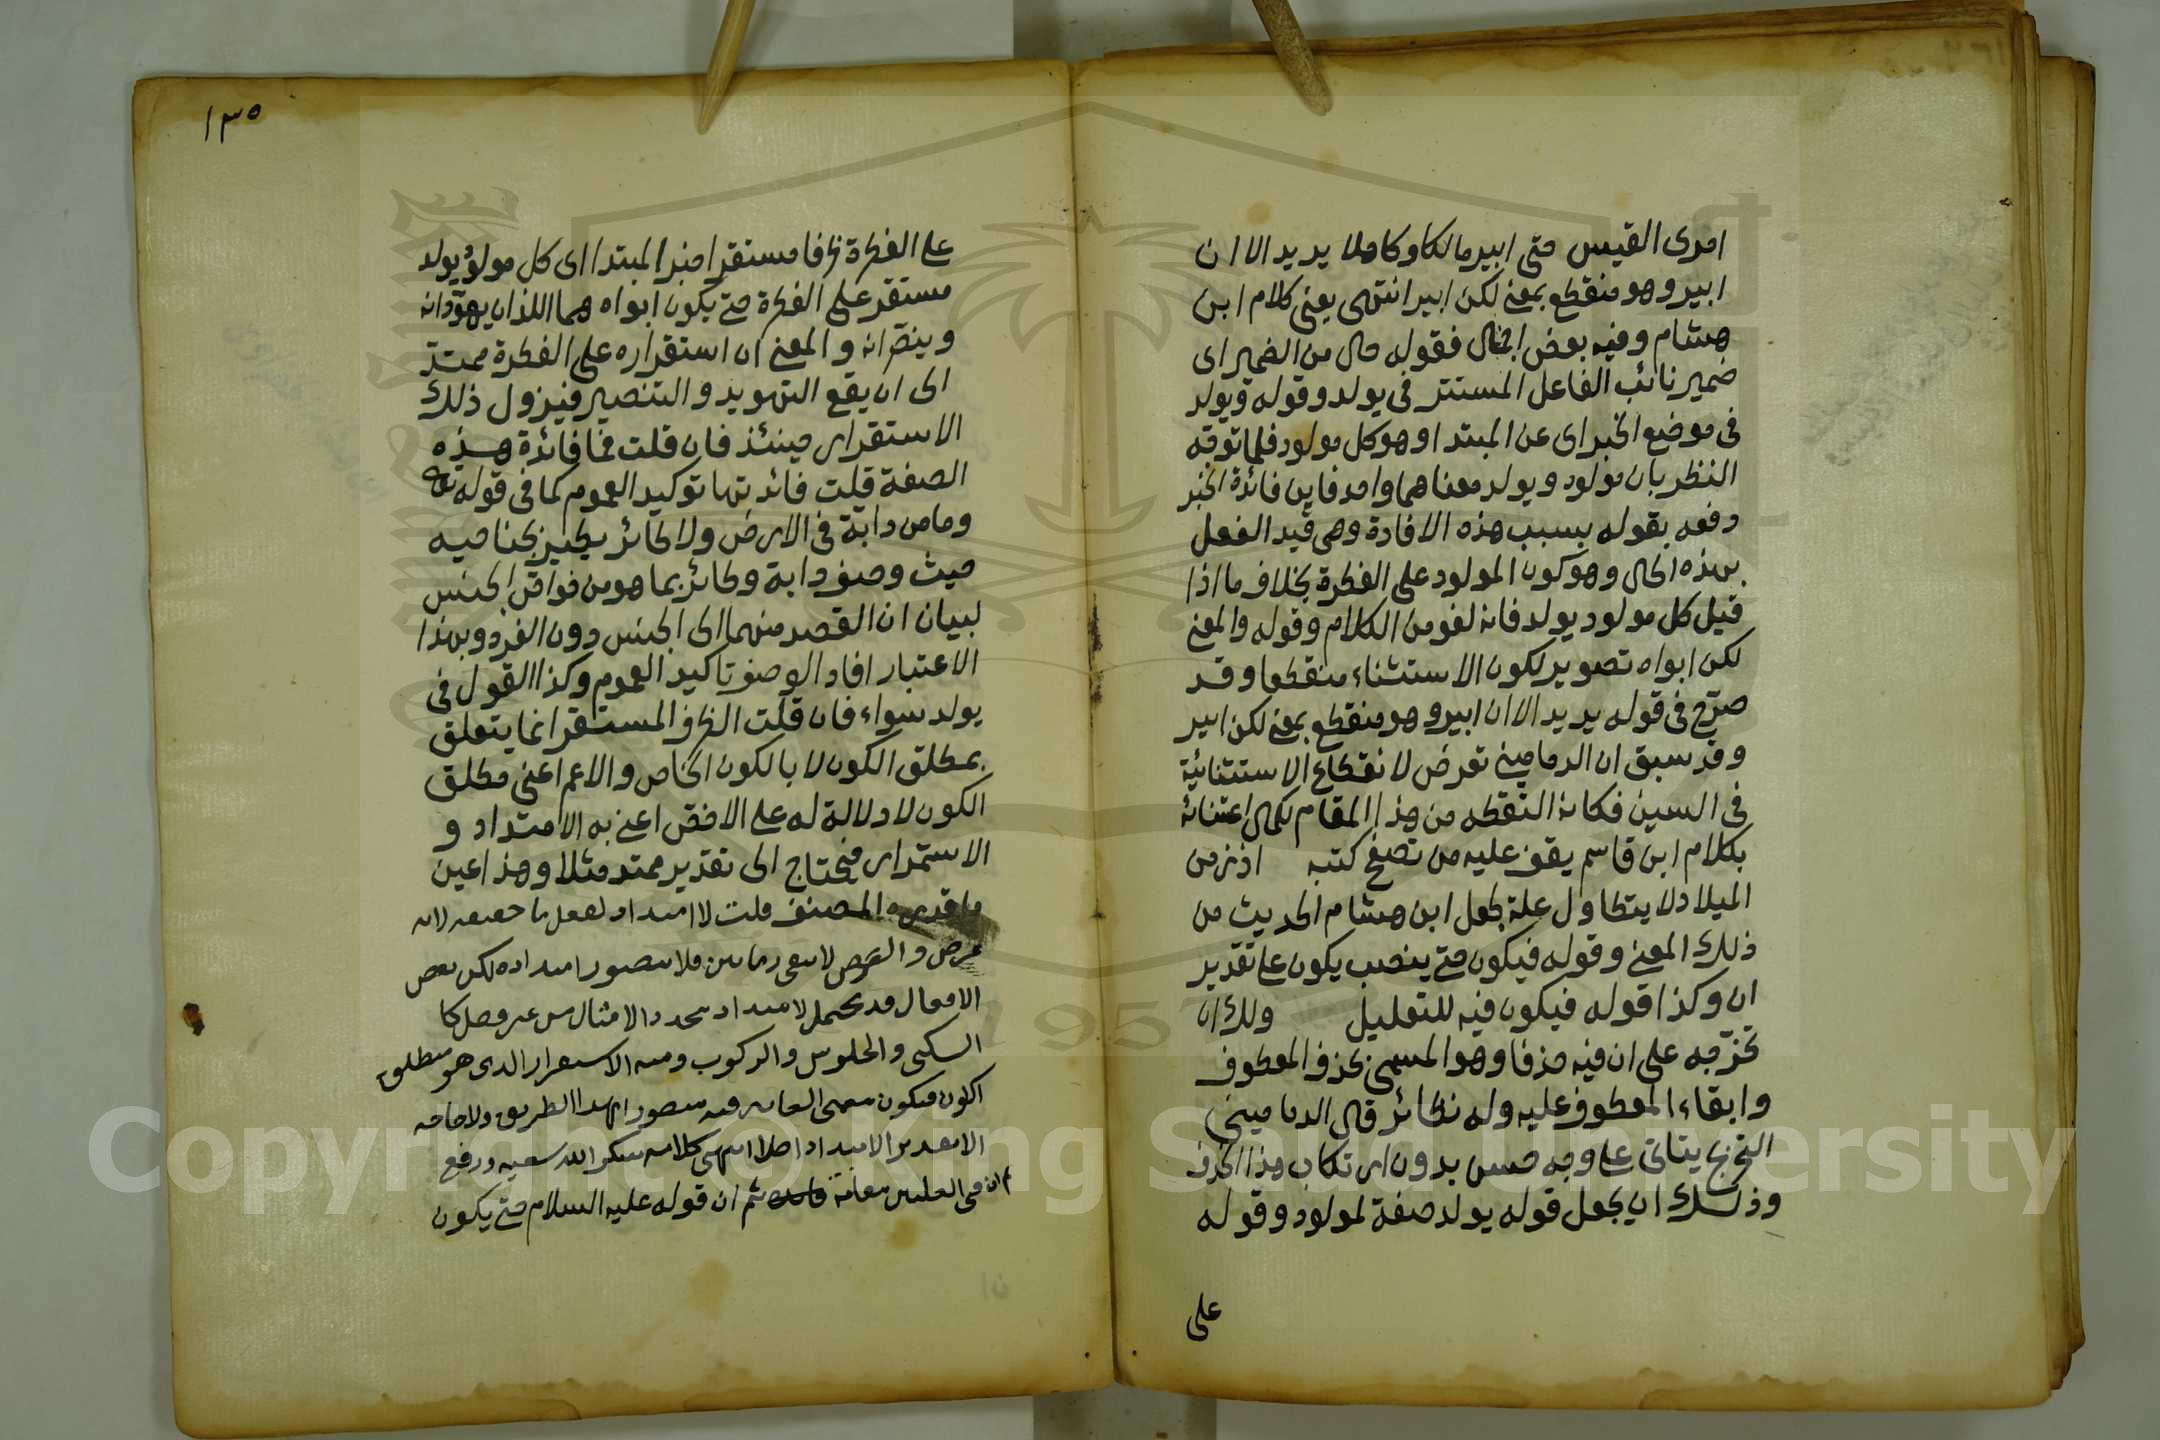 امرئ القيس حتى ابير مالكا وكاملا يريد الا ان
ابير وهو منقطع بمعنى لكن ابير انتهى يعنى كلام ابن
هشام وفيه بعض اخلال فقوله حال من الضمير اى
ضمير نائب الفاعل المستتر فى يولد وقوله ويولد
فى موضع الخبر اى عن المبتدا وهو كل مولود فلما توقه
النظر بان مولود ويولد معناهما واحد فاين فائدة الخبر
دفعه بقوله بسبب هذه الافادة وهى قيد الفعل
بهذه الحال وهو كون المولود على الفطرة بخلاف ما اذا
قيل كل مولود يولد فانه لغو من الكلام وقوله والمعنى
لكن ابواه تصوير لكون الاستثناء منقطعا وقد
صرّح فى قوله يريد الا ان ابير وهو منقطع بمعنى لكن ابير
وقد سبق ان الدمامينى تعرض لانقطاع الاستثنائية
فى السين فكانه التقطه من هذا المقام لكمال اعتنائه
بكلام ابن قاسم يقف عليه من تصفح كتبه اذ زمن
الميلاد لا يتطاول علة لجعل ابن هشام الحديث من
ذلك المعنى وقوله فيكون حتى ينصب يكون على تقدير
ان وكذا قوله فيكون فيه للتعليل ولك ان
تخرّجه على ان فيه حذفا وهو المسمى بحذف المعطوف
وابقاء المعطوف عليه وله نظائر قال الدمامينى
التخريج يتاتى على وجه حسن بدون ارتكاب هذا الحذف
وذلك ان يجعل قوله يولد صفة لمولود وقوله
على
١٣٥
على الفطرة ظرفا مستقرا خبر المبتدا اى كل مولود يولد
مستقر على الفطرة حتى يكون ابواه هما اللذان يهوّدانه
وينصّرانه والمعنى ان استقراره على الفطرة ممتدّ
الى ان يقع التهويد والتنصير فيزول ذلك
الاستقرار حينئذ فان قلت فما فائدة هذه
الصفة قلت فائدتها توكيد العموم كما فى قوله تعا
وما من دابة فى الارض ولا طائر يطير بجناحيه
حيث وصف دابة وطائر بما هو من خواص الجنس
لبيان ان القصد منهما الى الجنس دون الفرد وبهذا
الاعتبار افاد الوصف تاكيد العموم وكذا القول فى
يولد سواء فان قلت الظرف المستقر انما يتعلق
بمطلق الكون لا بالكون الخاص والاعم اعنى مطلق
الكون لا دلالة له على الاخص اعنى به الامتداد و
الاستمرار فيحتاج الى تقدير ممتد مثلا وهذا عين
ما قدره المصنف قلت لا امتداد لفعل ما حقيقة لانه
عرض والعرض لا يبقى زمانين فلا يتصور امتداده لكن بعض
الافعال قد يحتمل لامتداد بتجدد الامثال من غير فصل كا
السكنى والجلوس والركوب ومنه الاستقرار الذى هو مطلق
الكون فيكون معنى الغاية فيه متصورا بهذا الطريق ولا حاجة
الا تقدير الامتداد اصلا انتهى كلامه شكر الله سعيه ورفع
فى العليين مقامه ثم ان قوله عليه السلام حتى يكون